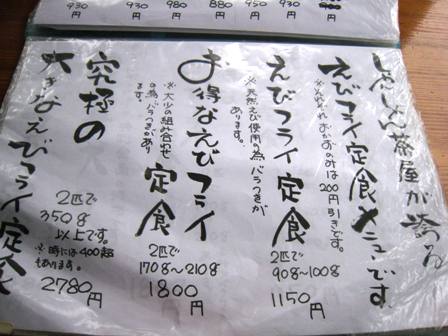 930円
930円
980円
880円
950円
930円
しんしん茶屋が誇る
えびフライ定食メニューです
※それぞれおかずのみは200円引きです。
えびフライ定食
※天然えび使用の為バラつきが
あります。
2匹で
90g〜100g
1150円
お得なえびフライ定食
※大小の組み合わせ
の為バラつきがあり
ます。
2匹で
170g〜210g
1800円
究極の
大きなえびフライ定食
2匹で
350g
以上です。
※時には400超
もあります。
2780円